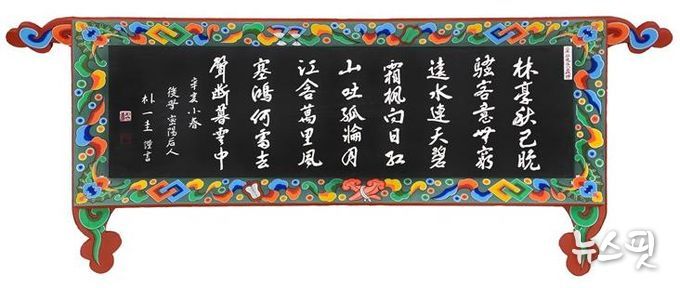 林亭秋已晩
騷客意無窮
遠水連天碧
霜楓向日紅
山吐孤輪月
江含萬里風
塞鴻何處去
聲斷暮雲中
辛亥小春
後學 密陽后人
朴一圭 謹書
뉴스핏